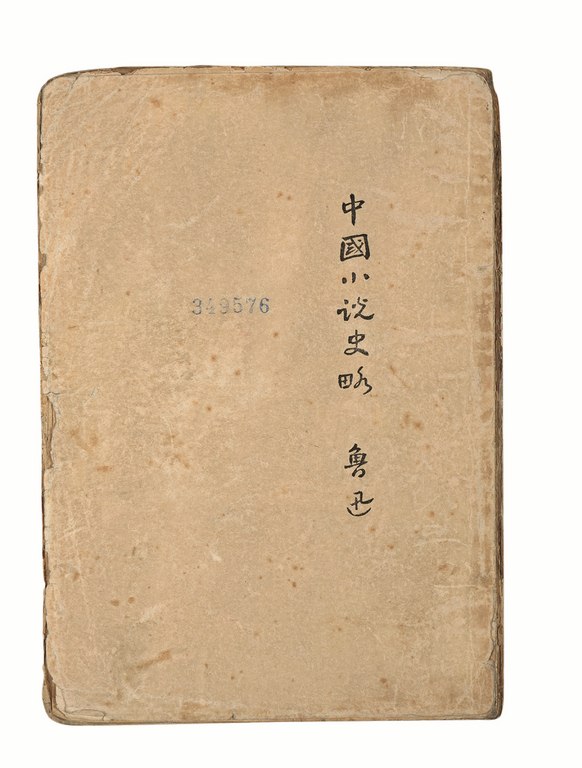 中國小说史略 魯迅
349576